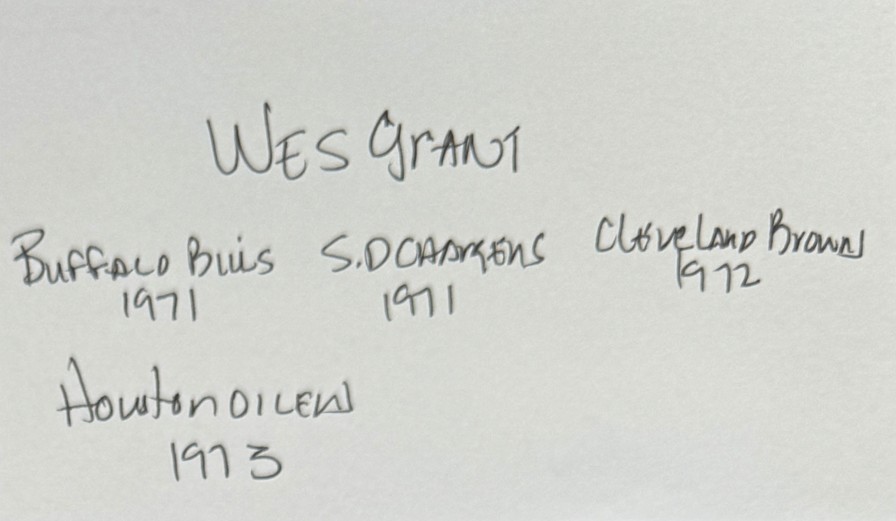 WES GRANT
Buffalo Bills S.D CHARGERS Cleveland Browns
1971 1971 1972
Houston OILERS
1973